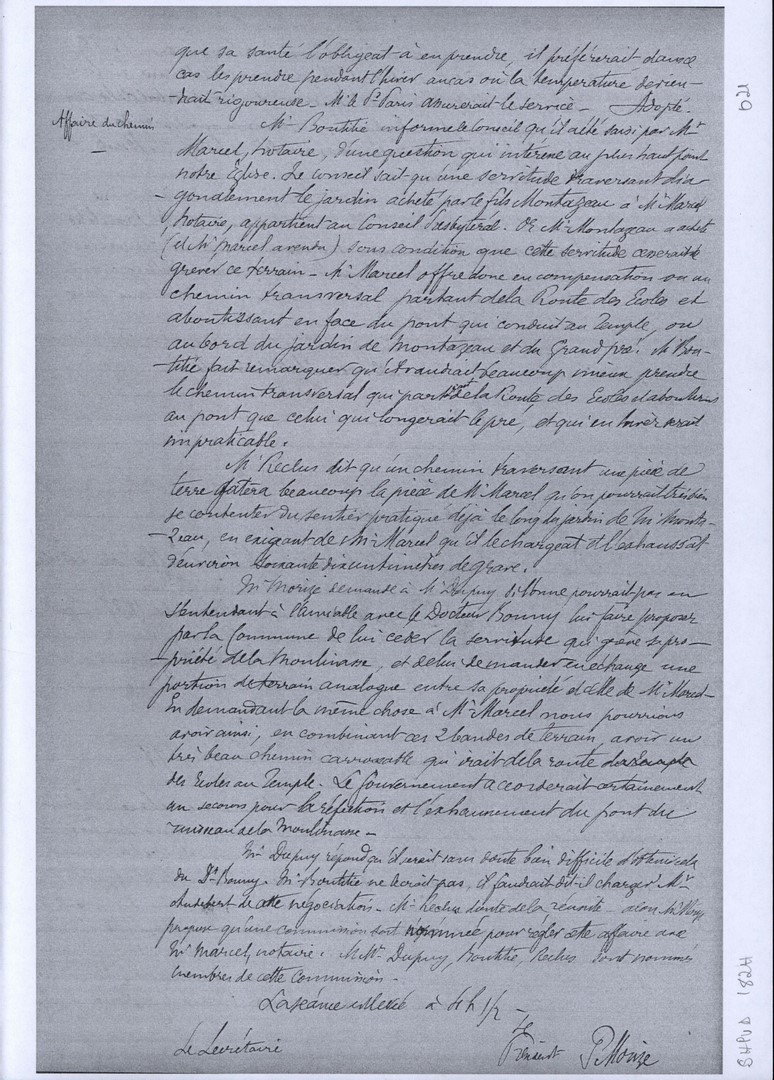 que sa santé l'obligeat à en prendre, il préférerait dans ce
cas les prendre pendant l'hiver au cas où la température devien-
drait rigoureuse — Mr le Pr Paris assurerait le service — Adopté.
Affaire du chemin
—
Mr Bontitié informe le Conseil qu'il a été saisi par Mr
Marcel, notaire, d'une question qui intéresse au plus haut point
notre Eglise. Le conseil sait qu'une servitude traversant dia-
gonalement le jardin acheté par le fils Montazeau à Mr Marcel
notaire, appartient au Conseil Presbytéral. Or Mr Montazeau a acheté
(et Mr Marcel a vendu) sous condition que cette servitude cesserait de
grever ce terrain — Mr Marcel offre donc en compensation ou un
chemin transversal partant de la Route des Ecoles et
aboutissant en face du pont qui conduit au Temple, ou
au bord du jardin de Montazeau et du Grand pré. Mr Bon-
titié fait remarquer qu'il vaudrait beaucoup mieux prendre
le chemin transversal qui part de la Route des Ecoles et aboutirais
au pont que celui qui longerait le pré, et qui en hiver serait
impraticable.
Mr Reclus dit qu'un chemin traversant une pièce de
terre gâtera beaucoup la pièce de Mr Marcel qu'on pourrait très bien
se contenter du sentier pratiqué déjà le long du jardin de Mr Monta-
zeau, en exigeant de Mr Marcel qu'il le chargeat et l'exhaussat
d'environ soixante dix centimètres de grave.
Mr Morize demande à Mr Dupuy si l'on ne pourrait pas en
s'entendant à l'amiable avec le Docteur Bonny lui faire proposer
par la Commune de lui céder la servitude qui gêne sa pro-
priété de la Moulinasse, et de lui demander en échange une
portion de terrain analogue entre sa propriété et celle de Mr Marcel —
En demandant la même chose à Mr Marcel nous pourrions
avoir ainsi, en combinant ces 2 bandes de terrain, avoir un
très beau chemin carrossable qui irait de la route
des Ecoles au Temple. Le Gouvernement accorderait certainement
un secours pour la réfection et l'exhaussement du pont du
ruisseau de la Moulinasse —
Mr Dupuy répond qu'il serait sans doute bien difficile d'obtenir cela
du Dr Bonny. Mr Bontitié ne le croit pas, il faudrait dit-il charger Mr
de cette négociation — Mr Reclus doute de la réussite — alors Mr Morize
propose qu'une commission soit nommée pour régler cette affaire avec
Mr Marcel, notaire. M.Mrs Dupuy, Bontitié, Reclus sont nommés
membres de cette commission —
La séance est levée à 4h 1/2 —
Le Secrétaire
Le
Président P Morize
021
SHPVD 1824